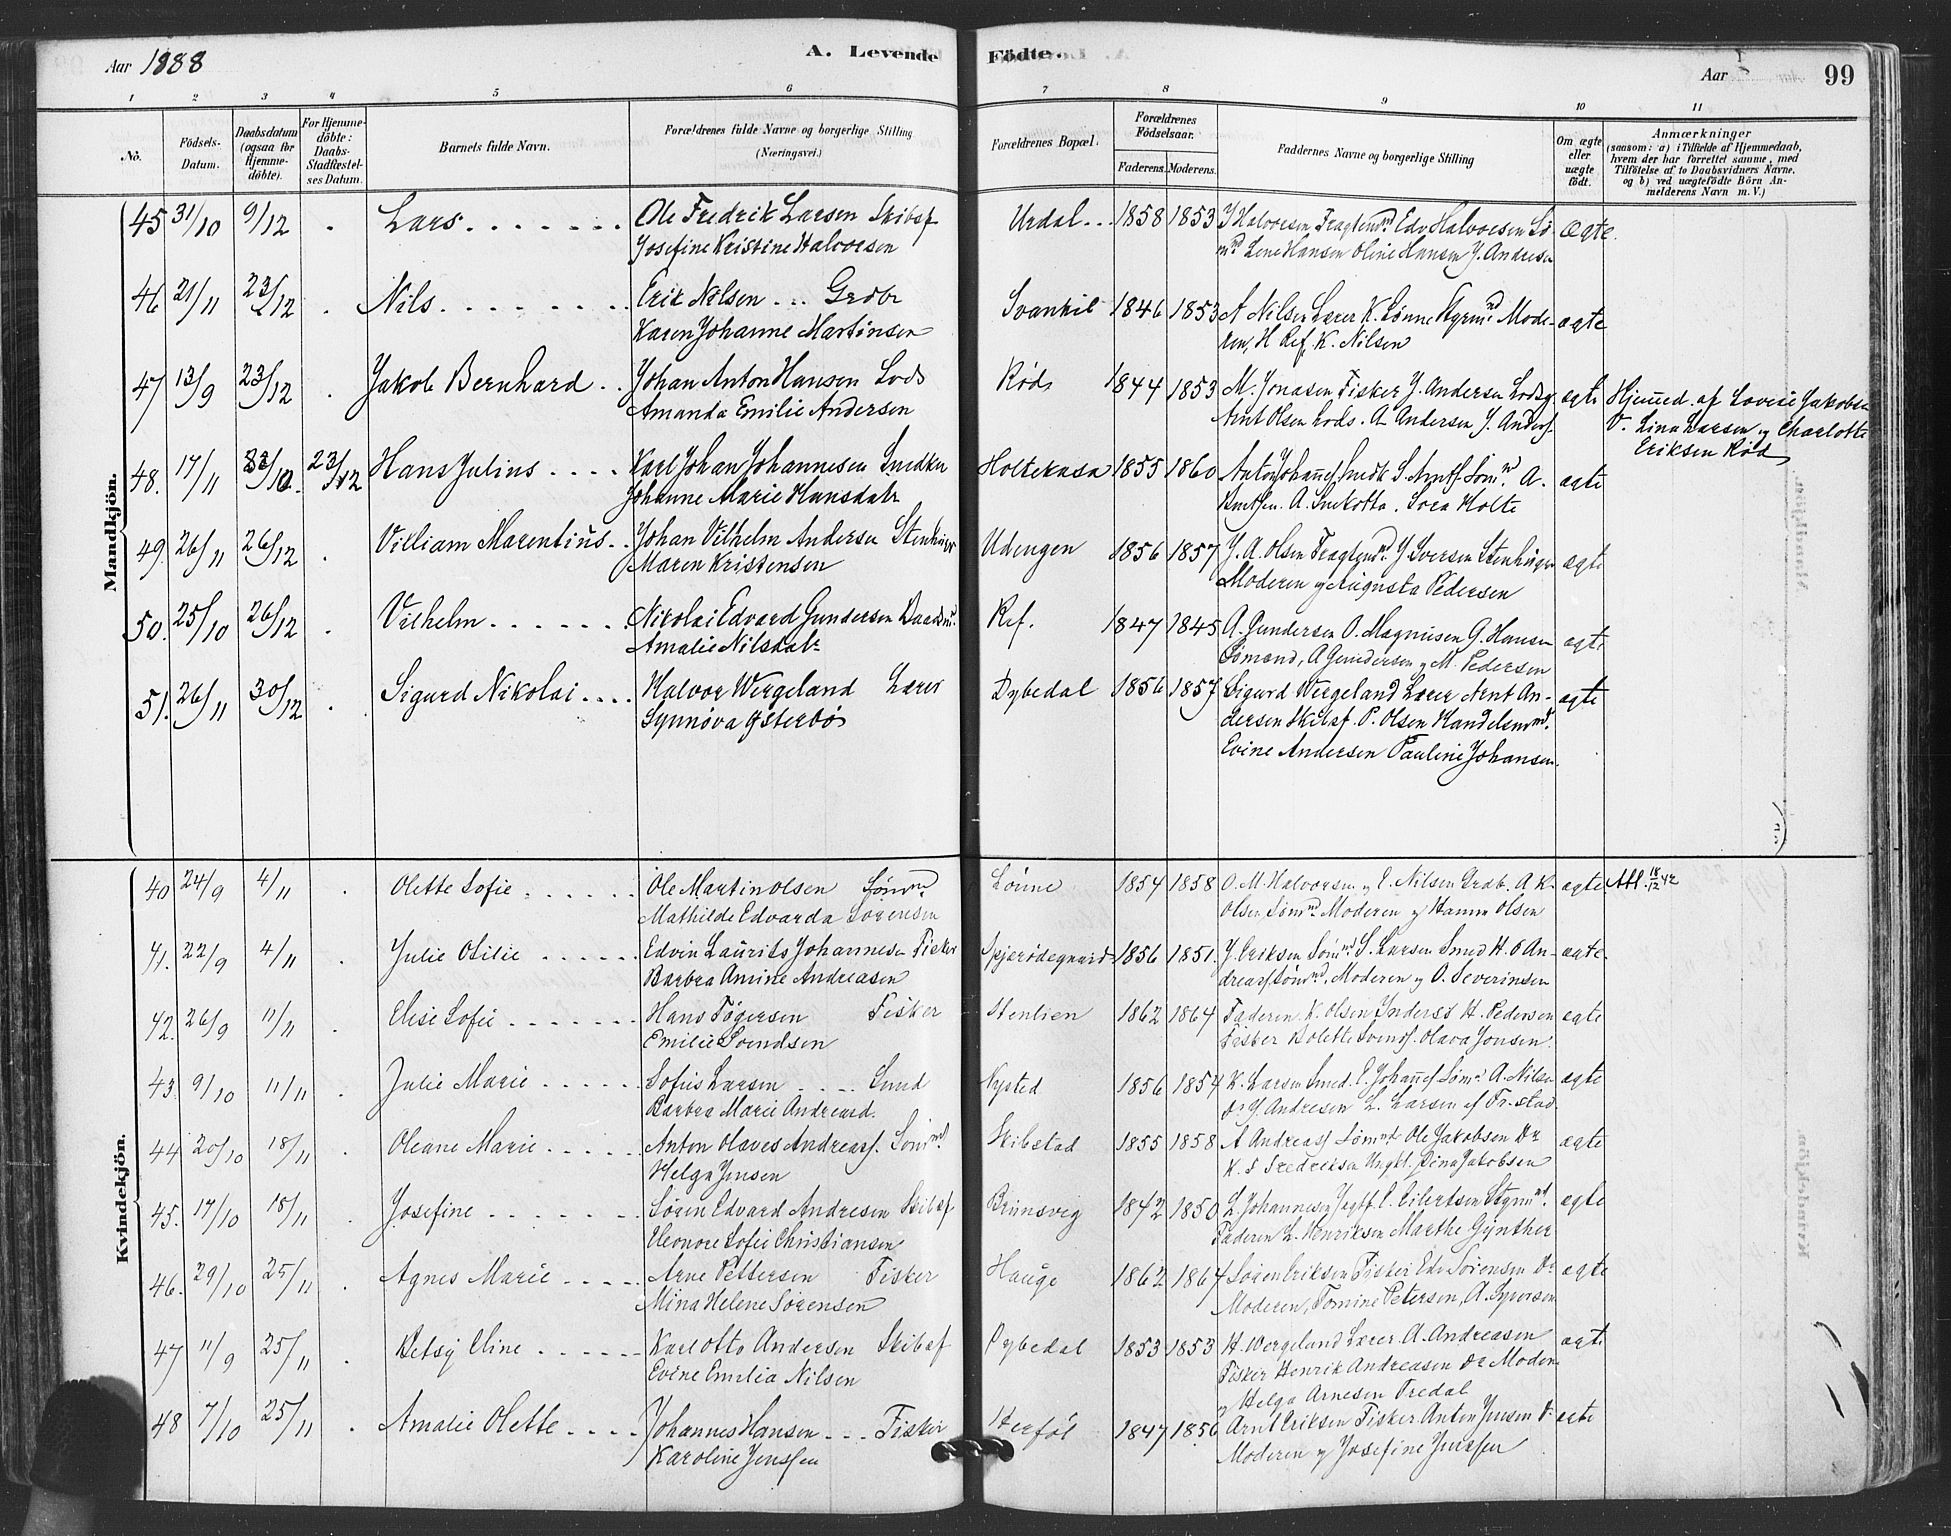 Aar 1888 A. Levende Födte. Aar 99
1 2 3 4 5 6 7 8 9 10 11
No. Födsels-Datum. Daabsdatum (ogsaa for Hjemme-döbte). For Hjemme-döbte: Daabs-Stadfæstel-ses Datum. Barnets fulde Navn. Forældrenes fulde Navne og borgerlige Stilling (Næringsvei.) Forældrenes Bopæl. Forældrenes Födselsaar. Faderens. Moderens. Faddernes Navne og borgerlige Stilling Om ægte eller uægte födt. Anmærkninger (saasom: a) i Tilfælde af Hjemmedaab, hvem der har forrettet samme, med Tilföielse af to Daabsvidners Navne, og b) ved uægtefödte Börn An-melderens Navn m. V.)
Mandkjön.
45 31/10 9/12 . Lars. Ole Fredrik Larsen Skibsf Urdal 1858 1853 J Halvorsen Fragtemd. Edv Halvorsen Sö- ægte.
Josefine Kristine Halvorsen md Lene Hansen Oline Hansen J. Andresen
46 21/11 23/12 . Nils. Erik Nilsen Grobr Svankil 1846 1853 A Nilsen Lærer K. Lønne Styrmd Mode- ægte
Karen Johanne Martinsen ren, H Ref, K. Nilsen
47 13/9 23/12 . Jakob Bernhard Johan Anton Hansen Lods Rød 1844 1853 M. Jonasen Fisker J. Andersen Lods ægte Hjemmed. af Lovise Jakobsen
Amanda Emilie Andersen Arnt Olsen Lods. A Andersen J. Anders. V. Lina Larsen og Charlotte
Eriksen Rød
48. 17/11 23/12 Hans Julius Karl Johan Johannesen Snedker Holtekasa 1855 1860 Anton Johanes. Smedk S. Arntf. Søm. A. ægte
Johanne Marie Hansdatr A. Snekotta. Holte
49. 26/11 26/12 . Villiam Marentius Johan Vilhelm Andersen Stenhugger Udengen 1856 1857 J. A. Olsen Fragtemd. J Iversen Stenhugger ægte
Maren Kristensen Moderen og Augusta Pedersen
50. 25/10 26/12 . Vilhelm Nikolai Edvard Gundersen Ref. 1847 1845 A. Gundersen O. Magnusen G. Hansen ægte
Amalie Nilsdatr Sømænd, A Gundersen og M. Pedersen
51. 26/11 30/12 . Sigurd Nikolai Halvor Wergeland Lærer Dybedal 1856 1857 Sigurd Wergeland Lærer Arnt An- ægte
Synnøva Ysterbø dersen Skibsf. P. Olsen Handelsmd.
Evine Andersen Pauline Johansen.
Kvindekjön.
40 24/9 4/11 . Olette Sofie Ole Martin Olsen Sømd Lønne 1854 1858 O. M. Halvorsen og E. Nilsen Grob. A K. ægte Att. 18/12 42
Mathilde Edvarda Sørensen Olsen, Sømd. Moderen og Hanna Olsen
41. 22/9 4/11 . Julie Otilie Edvin Laurits Johannesen Fisker Spjerødegaard 1856 1851. J. Eriksen Sømd. S. Larsen Smed H. O An- ægte
Barbra Amine Andreasen dreasf. Sømd, Moderen og O. Severinsen
42. 26/9 11/11 . Elise Sofie Hans Tøgersen Fisker Stenlien 1862 1864 Faderen K. Olsen Inderst H. Pedersen ægte
Emilie Svendsen Fisker Bolette Svends. Olava Jonsen.
43. 9/10 11/11 . Julie Marie Sofus Larsen Smed Nysted 1856 1854 K. Larsen Smed. E. Johanes Søm. A. Nilsen ægte
Barbra Marie Andread. Dr J. Andresen L. Larsen af Fr-stad
44 20/10 18/11 . Oleane Marie Anton Olaves Andreasf. Sømd Skibstad 1855 1858 A Andreasf Sømd Ole Jakobsen Dr ægte
Helga Jensen K. S Fredriksen Ungkl. Dina Jakobsen
45. 17/10 18/11 . Josefine Søren Edvard Andresen Skibsf Brunsvig 1842 1850 L. Johannesen Jagtf. E. Eilertsen Styrmd. ægte
Eleonore Sofie Christiansen Faderen L. Henriksen Marthe Gynther
46. 29/10 25/11 . Agnes Marie Arne Pettersen Fisker Hauge 1862 1864 Søren Eriksen Fisker Edv Sørensen Dr ægte
Mina Helene Sørensen Moderen, Tomine Petersen, A. Syversen
47 11/9 25/11 . Betsy Eline Karl Otto Andersen Skibsf Dybedal 1853 1853 H. Wergeland Lærer A. Andreasen ægte
Evine Emilia Nilsen Fisker Henrik Andreasen Dr Moderen
og Helga Arnesen Tredal
48 7/10 25/11 . Amalie Olette Johannes Hansen Fisker Herføl 1847 1856 Arnt Eriksen Fisker. Anton Jensen Dr ægte
Karoline Jensen Moderen og Josefine Jensen